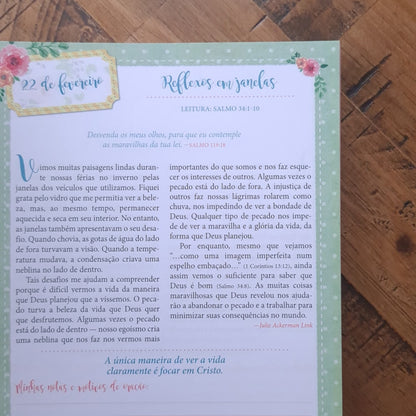 22 de fevereiro
Reflexos em janelas
LEITURA: SALMO 34:1-10
Desvenda os meus olhos, para que eu contemple
as maravilhas da tua lei. –SALMO 119:18
Vimos muitas paisagens lindas duran-
te nossas férias no inverno pelas
janelas dos veículos que utilizamos. Fiquei
grata pelo vidro que me permitia ver a bele-
za, mas, ao mesmo tempo, permanecer
aquecida e seca em seu interior. No entanto,
as janelas também apresentavam o seu desa-
fio. Quando chovia, as gotas de água do lado
de fora turvavam a visão. Quando a tempe-
ratura mudava, a condensação criava uma
neblina no lado de dentro.
Tais desafios me ajudam a compreender
porque é difícil vermos a vida da maneira
que Deus planejou que a víssemos. O peca-
do turva a beleza da vida que Deus quer
que desfrutemos. Algumas vezes o pecado
está do lado de dentro — nosso egoísmo cria
uma neblina que nos faz nos vermos mais
importantes do que somos e nos faz esque-
cer os interesses de outros. Algumas vezes o
pecado está do lado de fora. A injustiça de
outros faz nossas lágrimas rolarem como
chuva, nos impedindo de ver a bondade de
Deus. Qualquer tipo de pecado nos impe-
de de ver a maravilha e a glória da vida, da
forma que Deus planejou.
Por enquanto, mesmo que vejamos
“…como uma imagem imperfeita num
espelho embaçado…” (1 Coríntios 13:12), ainda
assim vemos o suficiente para saber que
Deus é bom (Salmo 34:8). As muitas coisas
maravilhosas que Deus revelou nos ajuda-
rão a abandonar o pecado e a trabalhar para
minimizar suas consequências no mundo.
—Julie Ackerman Link
A única maneira de ver a vida
claramente é focar em Cristo.
Minhas notas e motivos de oração: